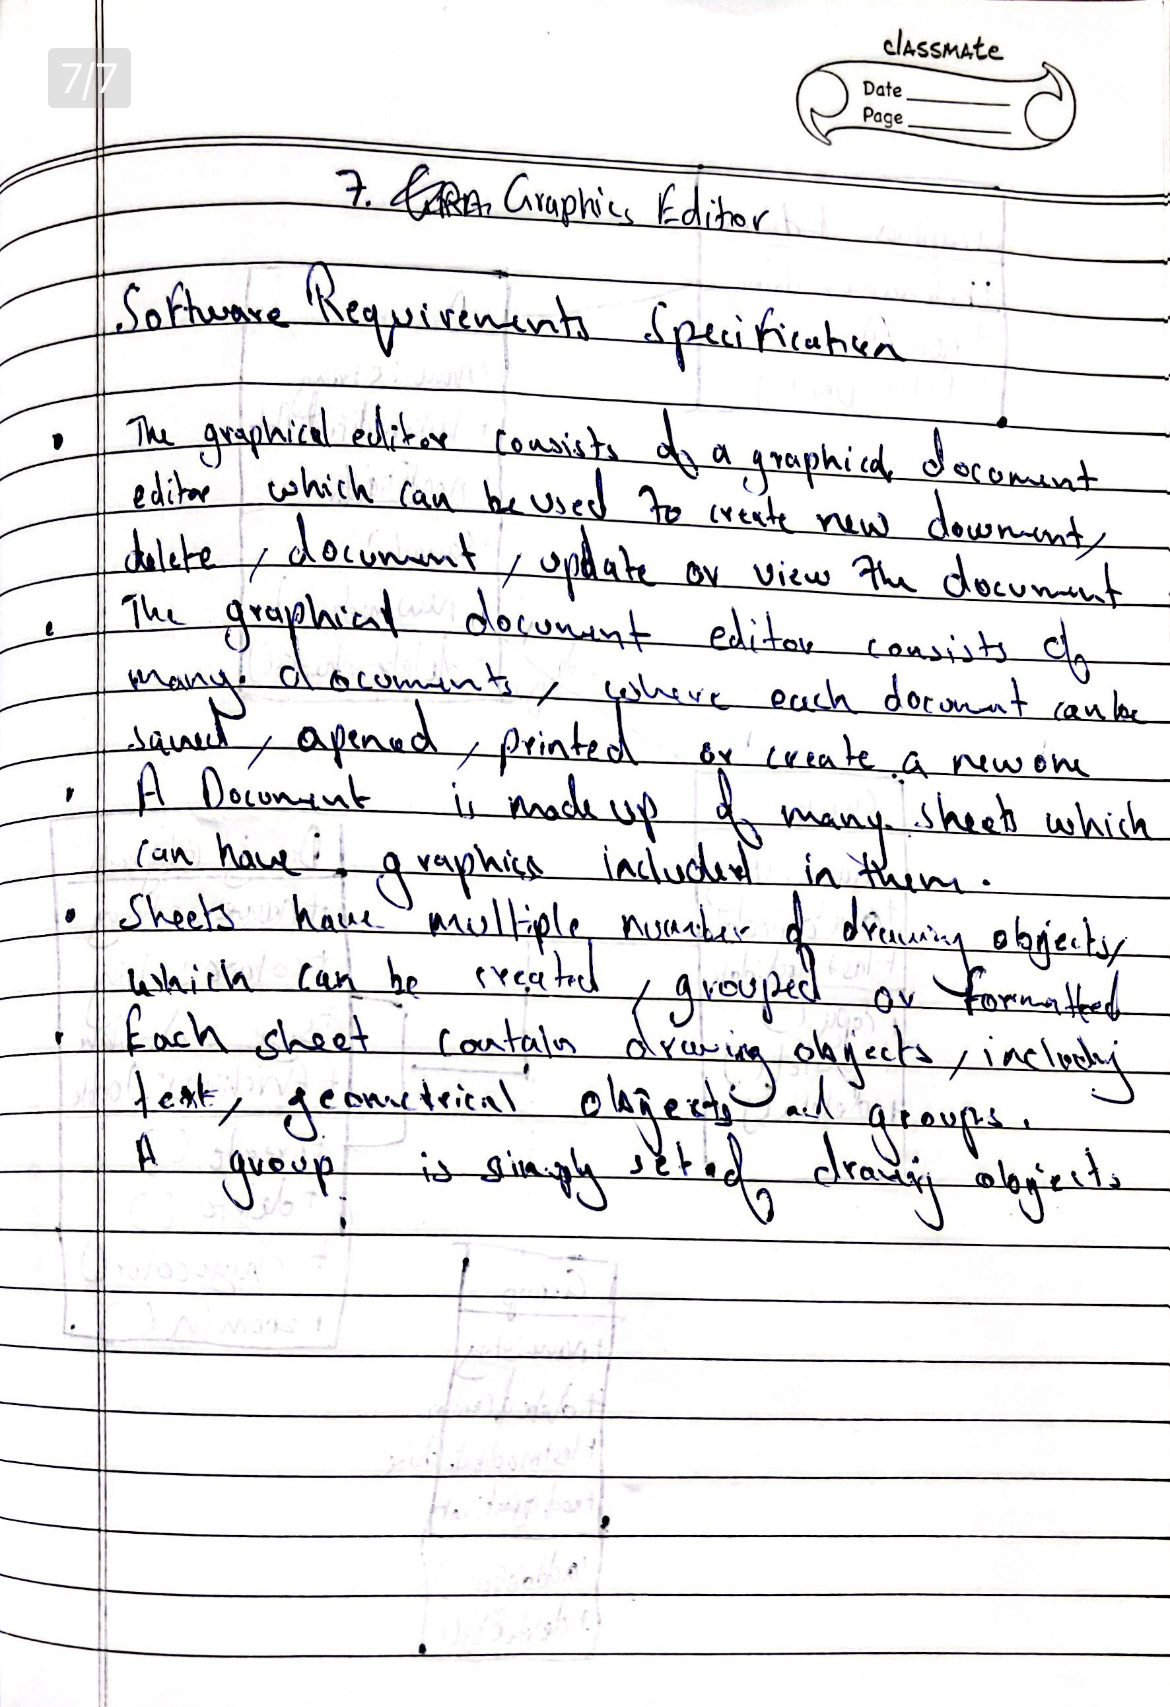 7/7
classmate
Date
Page
7. Graphics Editor
Software Requirements Specification
The graphical editor consists of a graphical document
editor which can be used to create new document,
delete, document, update or view the document
The graphical document editor consists of
many documents, where each document can be
saved, opened, printed or create a new one
A Document is made up of many sheets which
can have graphics included in them.
Sheets have multiple number of drawing objects,
which can be created, grouped or formatted
Each sheet contain drawing objects, including
text, geometrical objects and groups.
A group is simply set of drawing objects